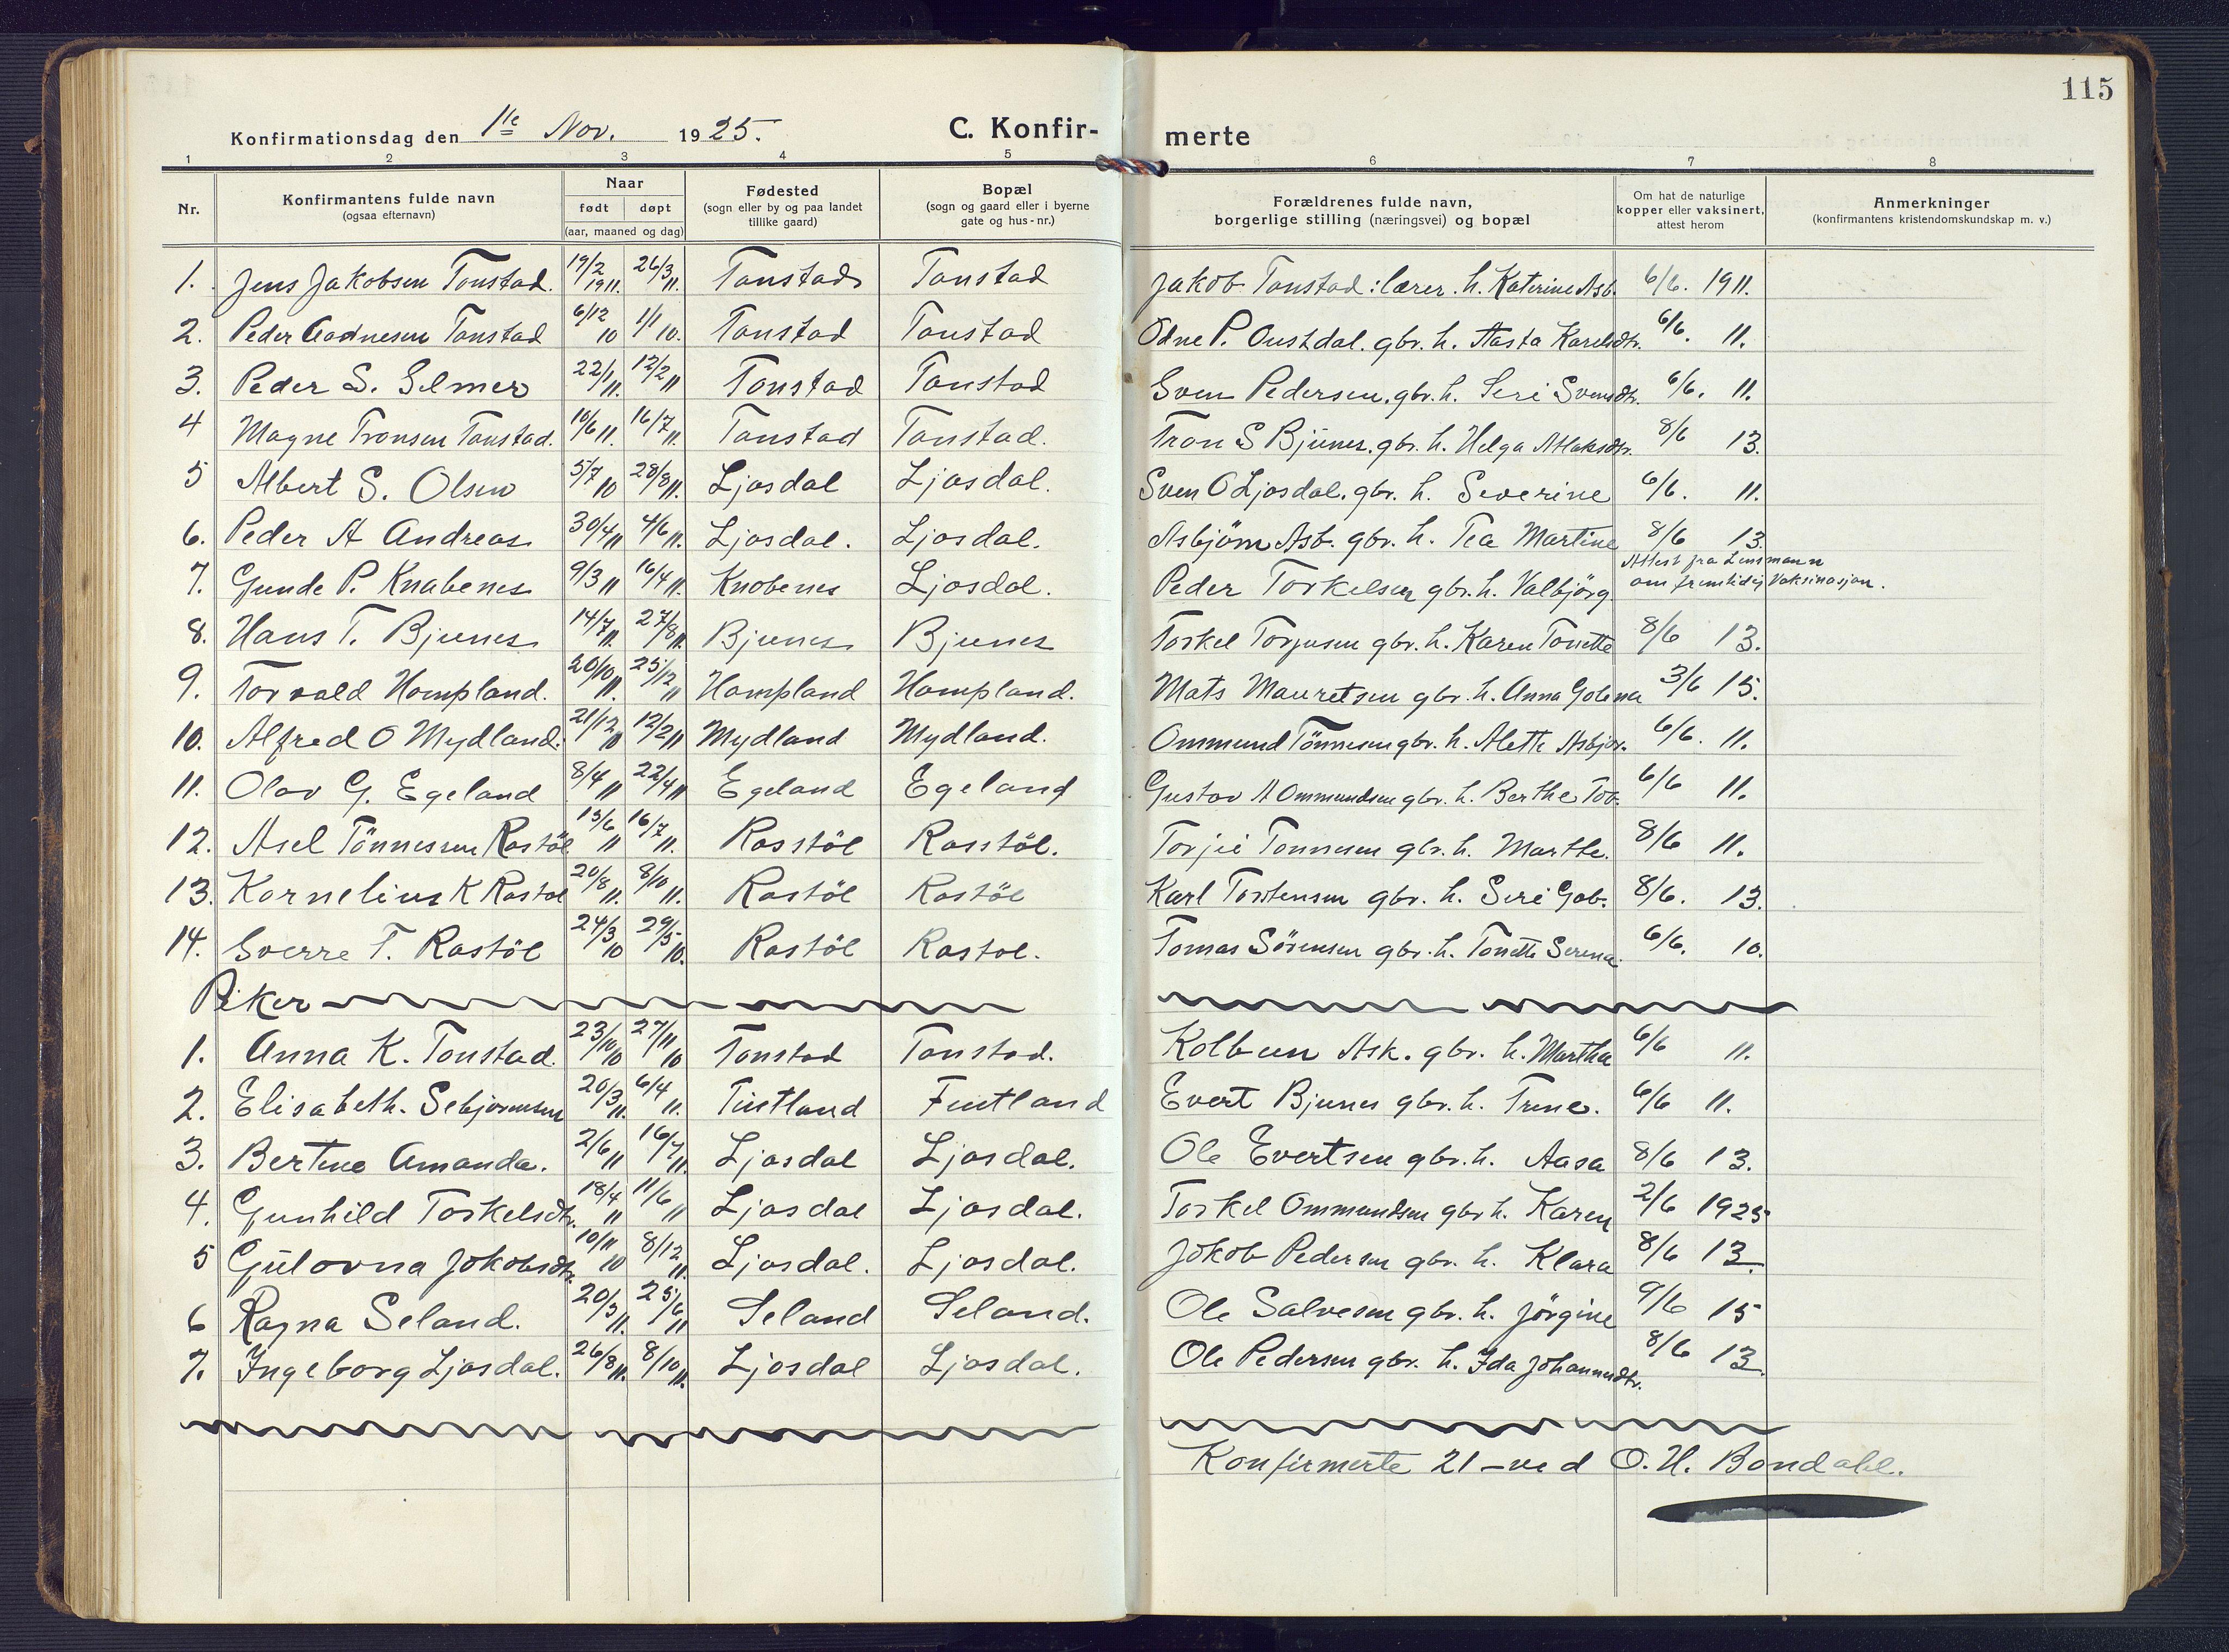 115
Konfirmationsdag den 1ste Nov. 1925. C. Konfir- merte
1 2 3 4 5 6 7 8
Nr. Konfirmantens fulde navn (ogsaa efternavn) Naar født døpt (aar, maaned og dag) Fødested (sogn eller by og paa landet tillike gaard) Bopæl (sogn og gaard eller i byerne gate og hus-nr.) Forældrenes fulde navn, borgerlige stilling (næringsvei) og bopæl Om hat de naturlige kopper eller vaksinert, attest herom Anmerkninger (konfirmantens kristendomskundskap m. v.)
1. Jens Jakobsen Tonstad. 19/2 1911. 26/3 11. Tonstad Tonstad Jakob Tonstad: lærer. h. Katerine Asb. 6/6. 1911.
2. Peder Aadnesen Tonstad 6/12 10 1/1 10. Tonstad Tonstad Odne P. Oustdal. gbr. h. Aasta Karelsdtr. 6/6. 11.
3. Peder S. Selmer 22/1 11. 12/2 11 Tonstad Tonstad Sven Pedersen. gbr. h. Seri Svensdtr. 6/6. 11.
4 Magne Tronsen Tonstad. 10/6 11. 16/7 11. Tonstad Tonstad. Tron S Bjunes. gbr. h. Helga Atlaksdtr. 8/6 13.
5 Albert S. Olsen 5/7 10 28/8 11. Ljosdal Ljosdal. Sven O Ljosdal. gbr. h. Severine 6/6. 11.
6. Peder A Andreas 30/4 11 4/6 11. Ljosdal. Ljosdal. Asbjörn Asb. gbr. h. Tea Martine 8/6 13.
7. Gunde P. Knabenes 9/3 11 16/4 11. Knobenes Ljosdal. Peder Torkelsen gbr. h. Valbjörg Attest fra Lensmann om fremtidig Vaksinasjon.
8. Hans T. Bjunes 14/7 11. 27/8 11. Bjunes Bjunes Torkel Torjusen gbr. h. Karen Tonette 8/6 13.
9. Torvald Hompland. 20/10 11. 25/12 11 Hompland Hompland. Mats Mauretsen gbr. h. Anna Golena 3/6 15.
10. Alfred O Mydland. 21/12 10 12/2 11 Mydland Mydland. Ommund Tönnesen gbr. h. Alette Asbjor. 6/6. 11.
11. Olav G. Egeland 8/4 11 22/4 11 Egeland Egeland Gustav A Ommundsen gbr. h. Berthe Tob. 6/6 11.
12. Asel Tönnessen Rostöl 13/6 11 16/7 11. Rosstöl Rosstöl. Torjei Tonnesen gbr. h. Marthe. 8/6 11.
13. Kornelius K Rostöl 20/8 11. 8/10 11. Rostöl Rostöl Karl Torstensen gbr. h. Seri Gob. 8/6. 13.
14. Sverre T. Rostöl 24/3 10 29/5 10. Rostöl Rostol. Tomas Sörensen gbr. h. Tonette Serena. 6/6. 10.
Piker
1. Anna K. Tonstad. 23/10 10 27/11 10 Tonstad Tonstad. Kolbeen Ask. gbr. h. Martha 6/6 11.
2. Elisabeth. Sebjornsen 20/3 11. 6/4 11. Fintland Fintland Evert Bjunes gbr. h. Trine. 6/6 11.
3. Bertine Amanda. 2/6 11 16/7 11. Ljosdal Ljosdal. Ole Evertsen gbr. h. Aasa 8/6 13.
4. Gunhild Torkelsdtr. 18/4 11 11/6 11 Ljosdal Ljosdal. Torkel Ommundsen gbr h. Karen 2/6 1925
5 Gulovna Jokobsdtr. 10/11 10 8/12 11. Ljosdal. Ljosdal. Jokob Pedersen gbr. h. Klara 8/6 13.
6 Ragna Seland. 20/5 11. 25/6 11 Seland Seland. Ole Salvesen gbr. h. Jörgine 9/6 15
7. Ingeborg Ljosdal. 26/8 11. 8/10 11. Ljosdal Ljosdal. Ole Pedersen gbr. h. Ida Johannesdtr. 8/6 13.
Konfirmerte 21 – ved O. H. Bondahl.